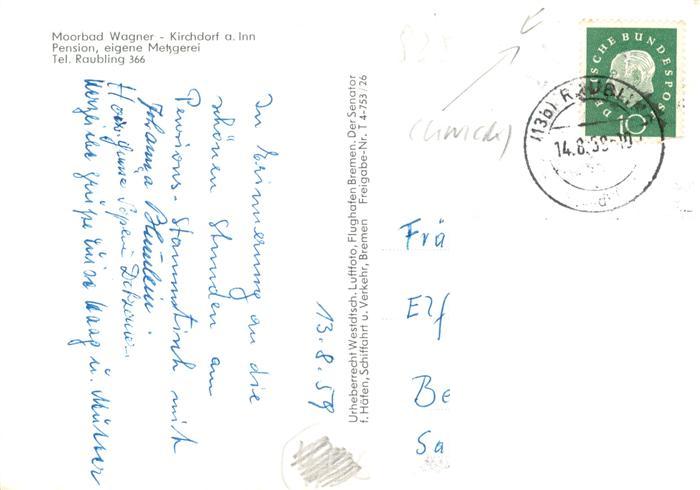 Moorbad Wagner - Kirchdorf a. Inn
Pension, eigene Metzgerei
Tel. Raubling 366
13.8.59
In Erinnerung an die
schönen Stunden am
Pensions-Stammtisch mit
Johanna
Herzliche Grüße Luise Haag u. Mutter
Urheberrecht Westdtsch. Luftfoto, Flughafen Bremen. Der Senator
f. Häfen, Schiffahrt u. Verkehr, Bremen Freigabe-Nr. T 4-753/26
DEUTSCHE BUNDESPOST
10
(13b) RAUBLING
14.8.59-10
Frä
Elf
Be
Sa